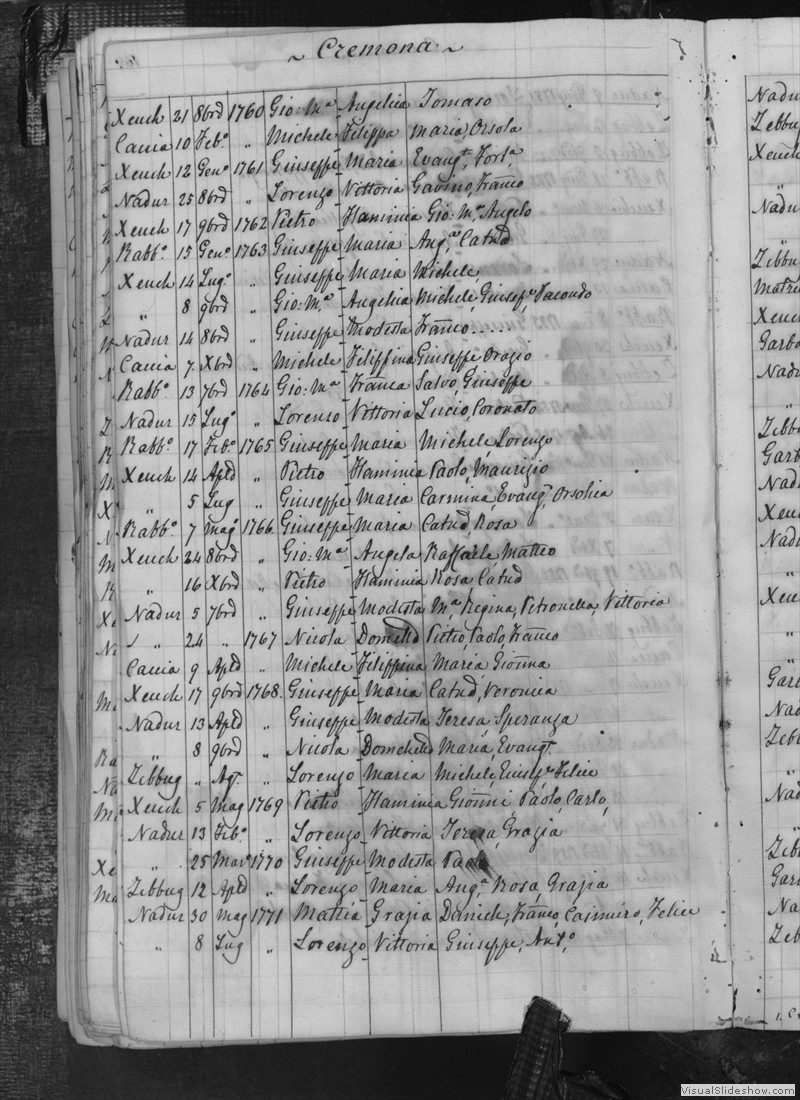 ~ Cremona ~
Xeuch 21 8brd 1760 Gio: Mª Angelica Tomaso
Caccia 10 Febº „ Michele Filippa Maria, Orsola
Xeuch 12 Genº 1761 Giuseppe Maria Evangª, Fortª
Nadur 25 8brd „ Lorenzo Vittoria Gavino, Franco
Xeuch 17 9brd 1762 Pietro Flaminia Gio: Mª Angelo
Rabbº 15 Genº 1763 Giuseppe Maria Angª, Catnd
Xeuch 14 Lugº „ Giuseppe Maria Michele
„ 8 9brd „ Gio: Mª Angelica Michele, Giusepe
Nadur 14 8brd „ Giuseppe Modesta Franco......
Caccia 7 Xbrd „ Michele Filippina Giuseppe Orazio
Rabbº 13 7brd 1764 Gio: Mª Franca Salvo, Giuseppe
Nadur 15 Lugº „ Lorenzo Vittoria Lucio, Coronato
Rabbº 17 Febº 1765 Giuseppe Maria Michele, Lorenzo
Xeuch 14 Apld „ Pietro Flaminia Paolo, Maurizio
„ 5 Lug „ Giuseppe Maria Carmina, Evangª, Orsolica
Rabbº 7 Magº 1766 Giuseppe Maria Catnd, Rosa
Xeuch 24 8brd „ Gio: Mª Angela Raffaele, Matteo
„ 16 Xbrd „ Pietro Flaminia Rosa, Catnd
Nadur 5 7brd „ Giuseppe Modesta Mª, Regina, Petronella, Vittoria
„ 24 „ 1767 Nicola Domcd Pietro, Paolo, Franco
Caccia 9 Apld „ Michele Filippina Maria, Gionna
Xeuch 17 9brd 1768 Giuseppe Maria Catnd, Veronica
Nadur 13 Apld „ Giuseppe Modesta Teresa, Speranza
„ 8 9brd „ Nicola Maria, Evangª
Zebbug „ Agt. „ Lorenzo Maria Michele, Felice
Xeuch 5 Mag 1769 Pietro Flaminia Gionni Paolo, Carlo,
Nadur 13 Febº „ Lorenzo Vittoria Teresa, Grazia
„ 25 Marº 1770 Giuseppe Modesta Paola
Zebbug 12 Apld „ Lorenzo Maria Angª Rosa, Grazia
Nadur 30 Mag 1771 Mattia Grazia Daniele, Franco, Casimiro, Felice
„ 8 Lug „ Lorenzo Vittoria Giuseppe, Antº
Nadu
Zebbu
Xeuch
„
Nadur
Zebbu
Xeuc
Garbo
Nadu
„
Zebbu
Garb
Nad
Xeu
Nadu
„
Xeu
„
„
Gar
Nad
Zeb
„
Nad
Zeb
Gar
Na
Zeb
VisualSlideshow.com